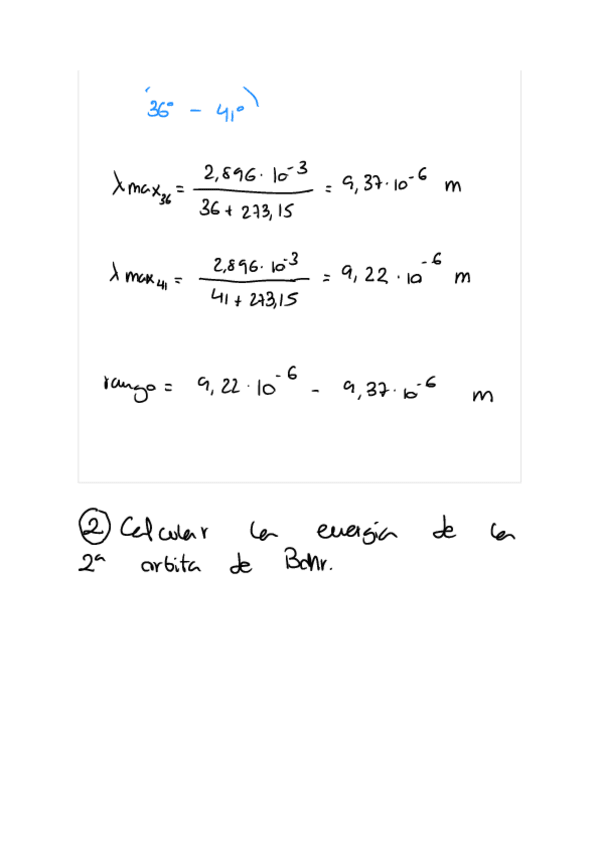 (36° - 41°)
λmax36 = 2,896·10^-3 / 36 + 273,15 = 9,37·10^-6 m
λmax41 = 2,896·10^-3 / 41 + 273,15 = 9,22·10^-6 m
rango = 9,22·10^-6 - 9,37·10^-6 m
② Calcular la energía de la
2ª orbita de Bohr.